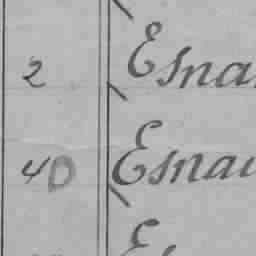 2 Esna
40 Esnau